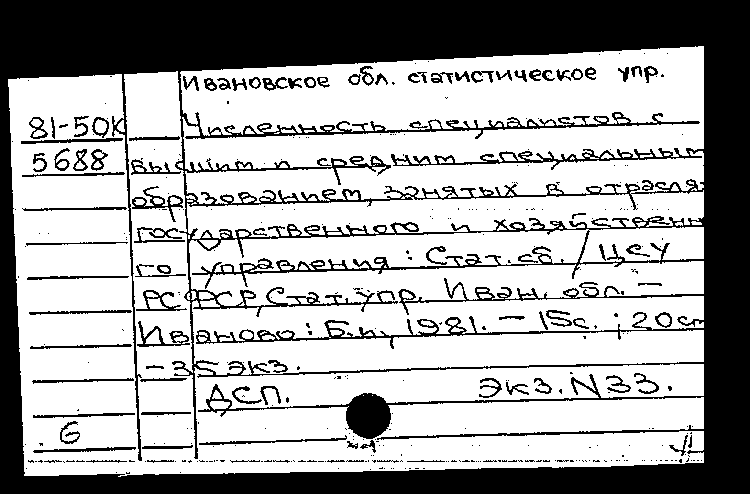 Ивановское обл. статистическое упр.
81-50к Численность специалистов с
5688 высшим и средним специальным
образованием, занятых в отрасля
государственного и хозяйственн
го управления : Стат. сб. / ЦСУ
РСФСР, Стат. упр. Иван. обл. —
Иваново : Б.и., 1981. — 15с. ; 20см
— 35 экз.
ДСП. Экз. N33.
6